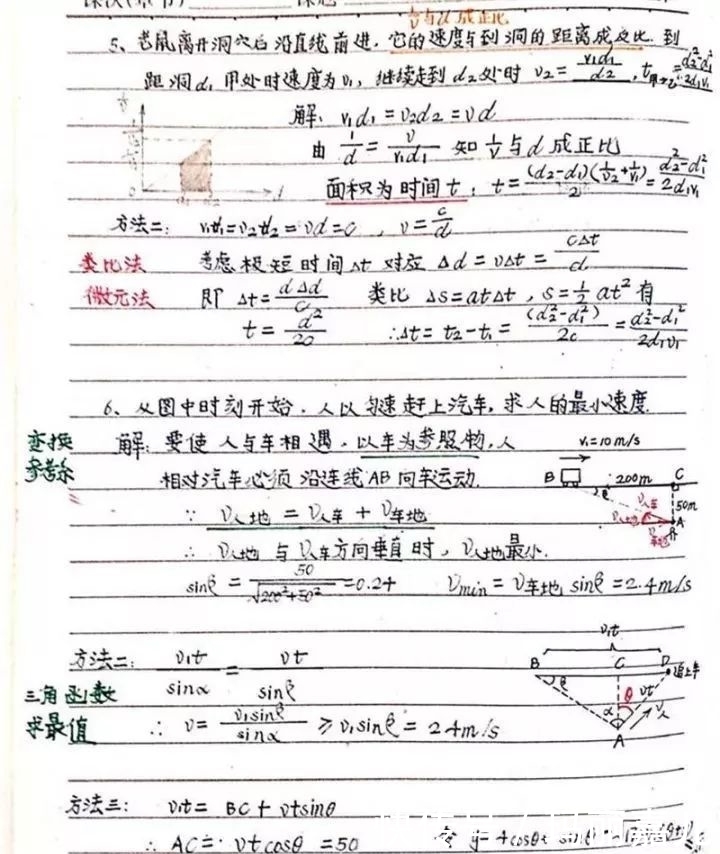 5、老鼠离开洞穴后沿直线前进,它的速度与到洞的距离成反比.到
距洞d₁甲处时速度为v₁,继续走到d₂处时 v₂=v₁d₁/d₂,
解: v₁d₁=v₂d₂=vd
知 1/v 与d成正比
面积为时间t: t=(d₂-d₁)(1/v₂+1/v₁)/2=(d₂²-d₁²)/2d₁v₁
方法二: =vd=c, v=c/d
类比法 考虑极短时间Δt 对应 Δd=vΔt=cΔt/d
微元法 即 Δt=dΔd/c 类比 Δs=atΔt, s=½at²有
∴Δt=t₂-t₁=(d₂²-d₁²)/2c=(d₂²-d₁²)/2d₁v₁
6、从图中时刻开始,人以匀速赶上汽车,求人的最小速度.
变换
参考系
解:要使人与车相遇,以车为参照物,人
相对汽车必须沿连线AB向车运动.
v₁=10m/s
B 200m C
50m
A
∵ v人地=v人车+v车地
∴ v人地与v人车方向垂直时,v人地最小.
sinβ=50/√(200²+50²)=0.24 vmin=v车地sinβ=2.4m/s
方法二: v₁t/sinα=vt/sinβ
三角函数
求最值
∴ v=v₁sinβ/sinα≥v₁sinβ=2.4m/s
v₁t
B C D 追上车
β θ vt
α v人
A
方法三: v₁t=BC+vtsinθ
∴ AC= vtcosθ=50